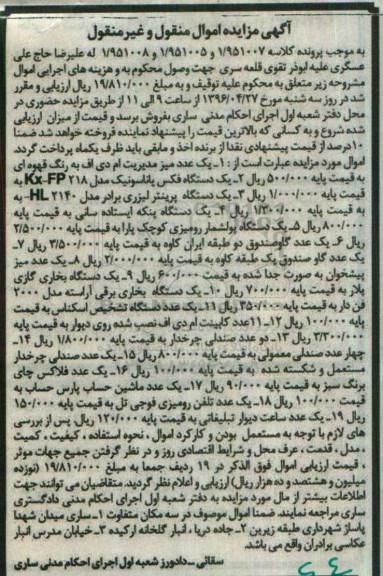 آگهی مزایده اموال منقول و غیر منقول
به موجب پرونده کلاسه ۱/۹۵۱۰۰۷ و ۱/۹۵۱۰۰۵ و ۱/۹۵۱۰۰۸ له علیرضا حاج علی
عسگری علیه ابوذر تقوی قلعه سری جهت وصول محکوم به و هزینه های اجرایی اموال
مشروحه زیر متعلق به محکوم علیه توقیف و به مبلغ ۱۹/۸۱۰/۰۰۰ ریال ارزیابی و مقرر
شد در روز سه شنبه مورخ ۱۳۹۶/۰۴/۲۷ از ساعت ۹ الی ۱۱ از طریق مزایده حضوری در
محل دفتر شعبه اول اجرای احکام مدنی ساری بفروش برسد و قیمت از میزان ارزیابی
شده شروع و به کسانی که بالاترین قیمت را پیشنهاد نماینده فروخته خواهد شد ضمنا
۱۰درصد از قیمت پیشنهادی نقدا از برنده اخذ و مابقی باید ظرف یکماه پرداخت گردد.
اموال مورد مزایده عبارت است از: ۱- یک عدد میز مدیریت ام دی اف به رنگ قهوه ای
به قیمت پایه ۵۰۰/۰۰۰ ریال ۲- یک دستگاه فکس پاناسونیک مدل Kx-FP ۲۱۸ به
قیمت پایه ۱/۰۰۰/۰۰۰ ریال ۳- یک دستگاه پرینتر لیزری برادر مدل HL-۲۱۴۰ به
به قیمت پایه ۱/۳۰۰/۰۰۰ ریال ۴- یک دستگاه پنکه ایستاده سانی به قیمت پایه
۸۰۰/۰۰۰ ریال ۵- یک دستگاه پولشمار رومیزی کوچک پارا به قیمت پایه ۲/۵۰۰/۰۰۰
ریال ۶- یک عدد گاوصندوق دو طبقه ایران کاوه به قیمت پایه ۳/۵۰۰/۰۰۰ ریال ۷-
یک عدد گاو صندوق یک طبقه کاوه به قیمت پایه ۲/۰۰۰/۰۰۰ ریال ۸- یک عدد میز
پیشخوان به صورت جدا شده به قیمت ۶۰۰/۰۰۰ ریال ۹- یک دستگاه بخاری گازی
پلار به قیمت پایه ۷۰۰/۰۰۰ ریال ۱۰- یک دستگاه بخاری برقی آراسته مدل ۲۰۰۰
فن دار به قیمت پایه ۳۵۰/۰۰۰ ریال ۱۱- یک عدد دستگاه تشخیص اسکناس به قیمت
پایه ۱۰۰/۰۰۰ ریال ۱۲- ۱۱عدد کابینت ام دی اف نصب شده روی دیوار به قیمت پایه
۳/۳۰۰/۰۰۰ ریال ۱۳- دو عدد صندلی چرخدار به قیمت پایه ۱/۸۰۰/۰۰۰ ریال ۱۴-
چهار عدد صندلی معمولی به قیمت پایه ۸۰۰/۰۰۰ ریال ۱۵- یک عدد صندلی چرخدار
مستعمل و شکسته شده به قیمت پایه ۱۰۰/۰۰۰ ریال ۱۶- یک عدد فلاکس چای
برنگ سبز به قیمت پایه ۹۰/۰۰۰ ریال ۱۷- یک عدد ماشین حساب پارس حساب به
قیمت ۱۰۰/۰۰۰ ریال ۱۸- یک عدد تلفن رومیزی فوجی تل به قیمت پایه ۱۵۰/۰۰۰
ریال ۱۹- یک عدد ساعت دیوار تبلیغاتی به قیمت پایه ۱۲۰/۰۰۰ ریال. پس از بررسی
های لازم با توجه به مستعمل بودن و کارکرد اموال، نحوه استفاده، کیفیت، کمیت
، مدل، قدمت، عرف محل و شرایط اقتصادی روز و در نظر گرفتن جمیع جهات موثر
، قیمت ارزیابی اموال فوق الذکر در ۱۹ ردیف جمعا به مبلغ ۱۹/۸۱۰/۰۰۰ (نوزده
میلیون و هشتصد و ده هزار ریال) ارزیابی و اعلام نظر گردید. متقاضیان می توانند جهت
اطلاعات بیشتر از مال مورد مزایده به دفتر شعبه اول اجرای احکام مدنی دادگستری
ساری مراجعه نمایند. ضمنا اموال موصوف در سه مکان متفاوت ۱- ساری میدان شهدا
پاساژ شهرداری طبقه زیرین ۲- جاده دریا، انبار گلخانه ارکیده ۳- خیابان مدرس انبار
عکاسی برادران واقع می باشد.
سقائی - دادورز شعبه اول اجرای احکام مدنی ساری